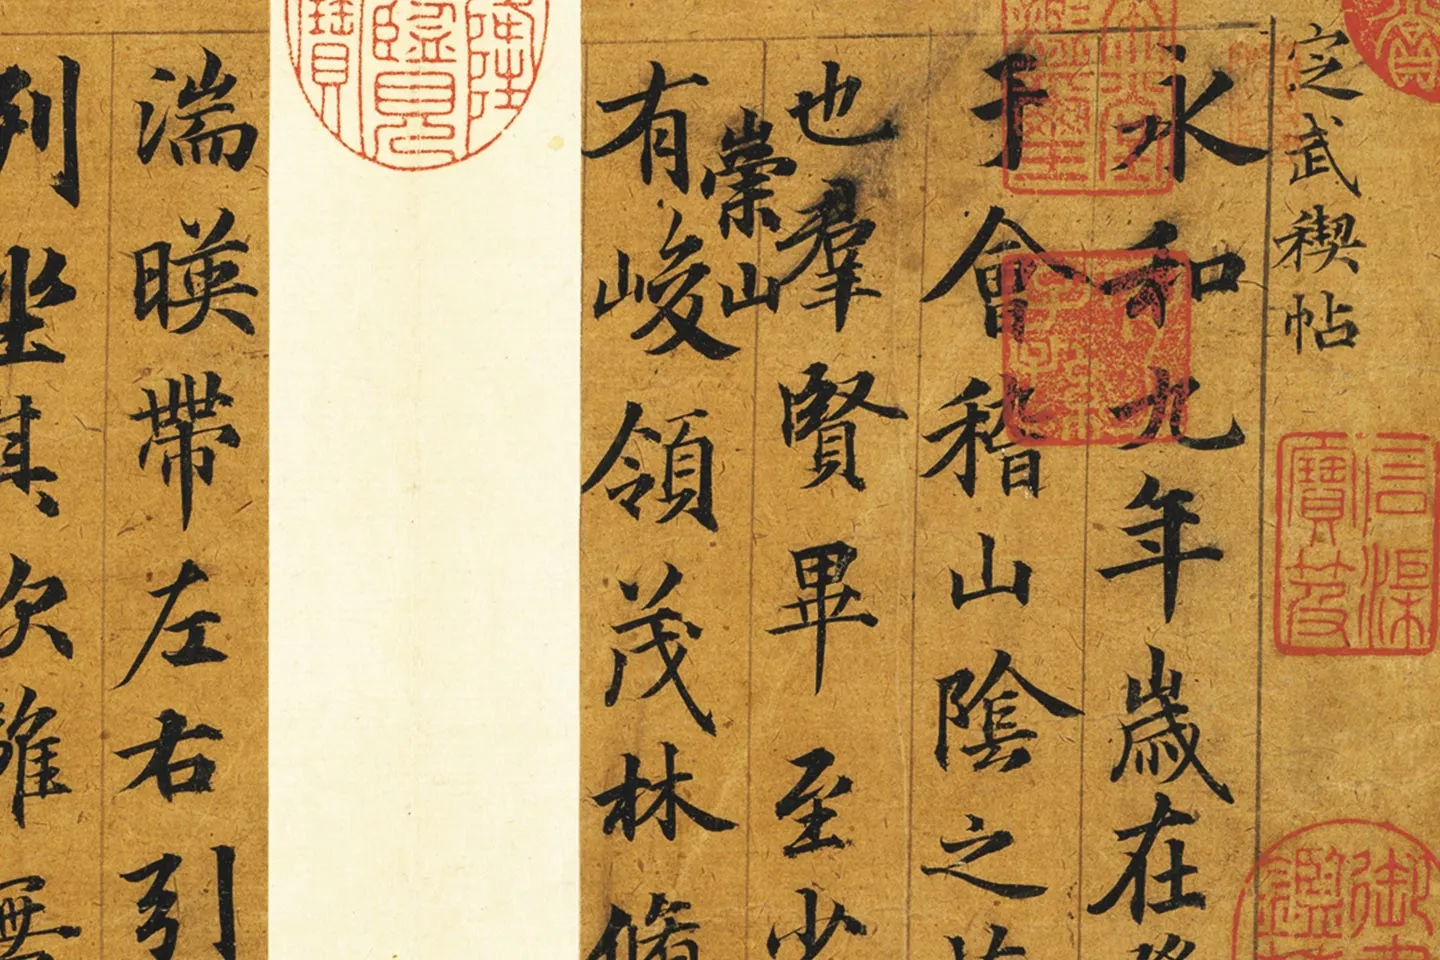 定武禊帖
永和九年歲在
于會稽山陰之
也羣賢畢至少
崇山
有峻領茂林脩
湍暎帶左右引
列坐其次雖無